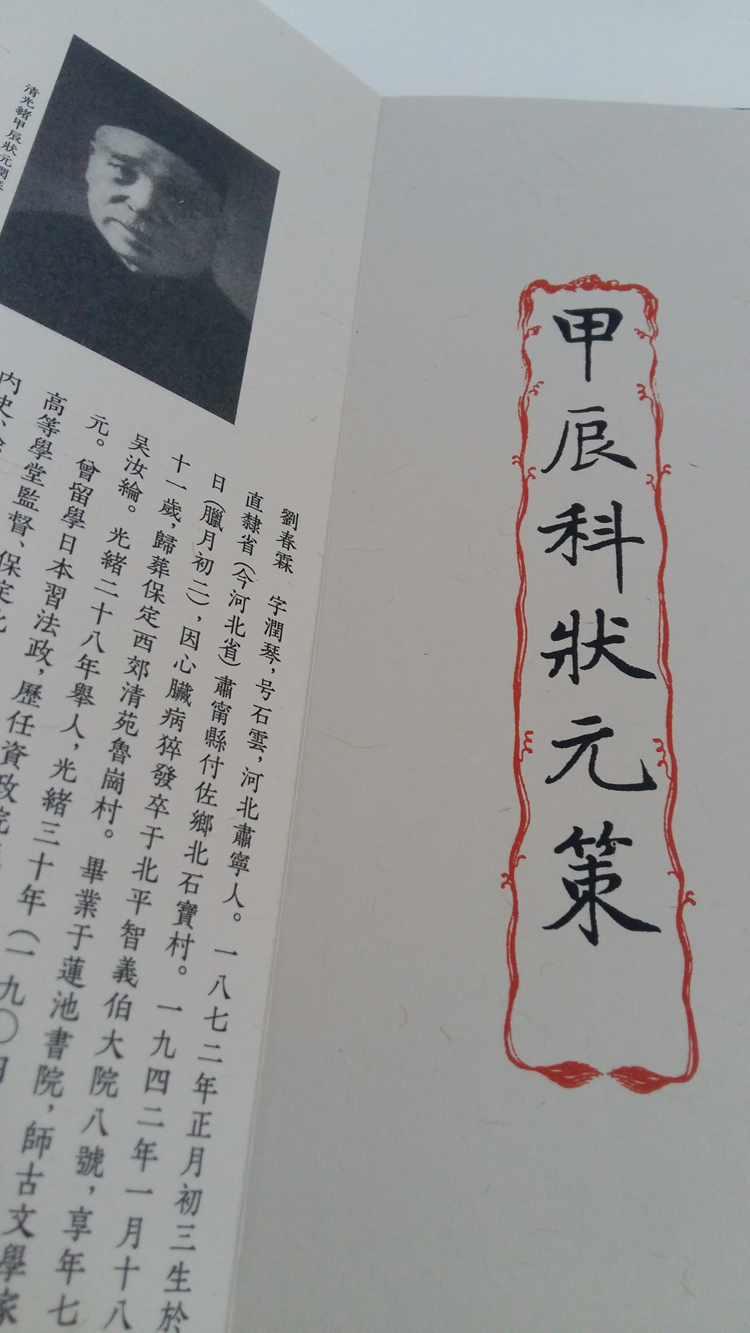 甲辰科狀元策
清光緒甲辰狀元潤琴
劉春霖　字潤琴，号石雲，河北肅寧人。一八七二年正月初三生於
直隸省（今河北省）肅甯縣付佐鄉北石寶村。一九四二年一月十八
日（臘月初二），因心臟病猝發卒于北平智義伯大院八號，享年七
十一歲，歸葬保定西郊清苑魯崗村。畢業于蓮池書院，師古文學家
吴汝綸。光緒二十八年舉人，光緒三十年（一九〇
元。曾留學日本習法政，歷任資政院
高等學堂監督、保定
内史、